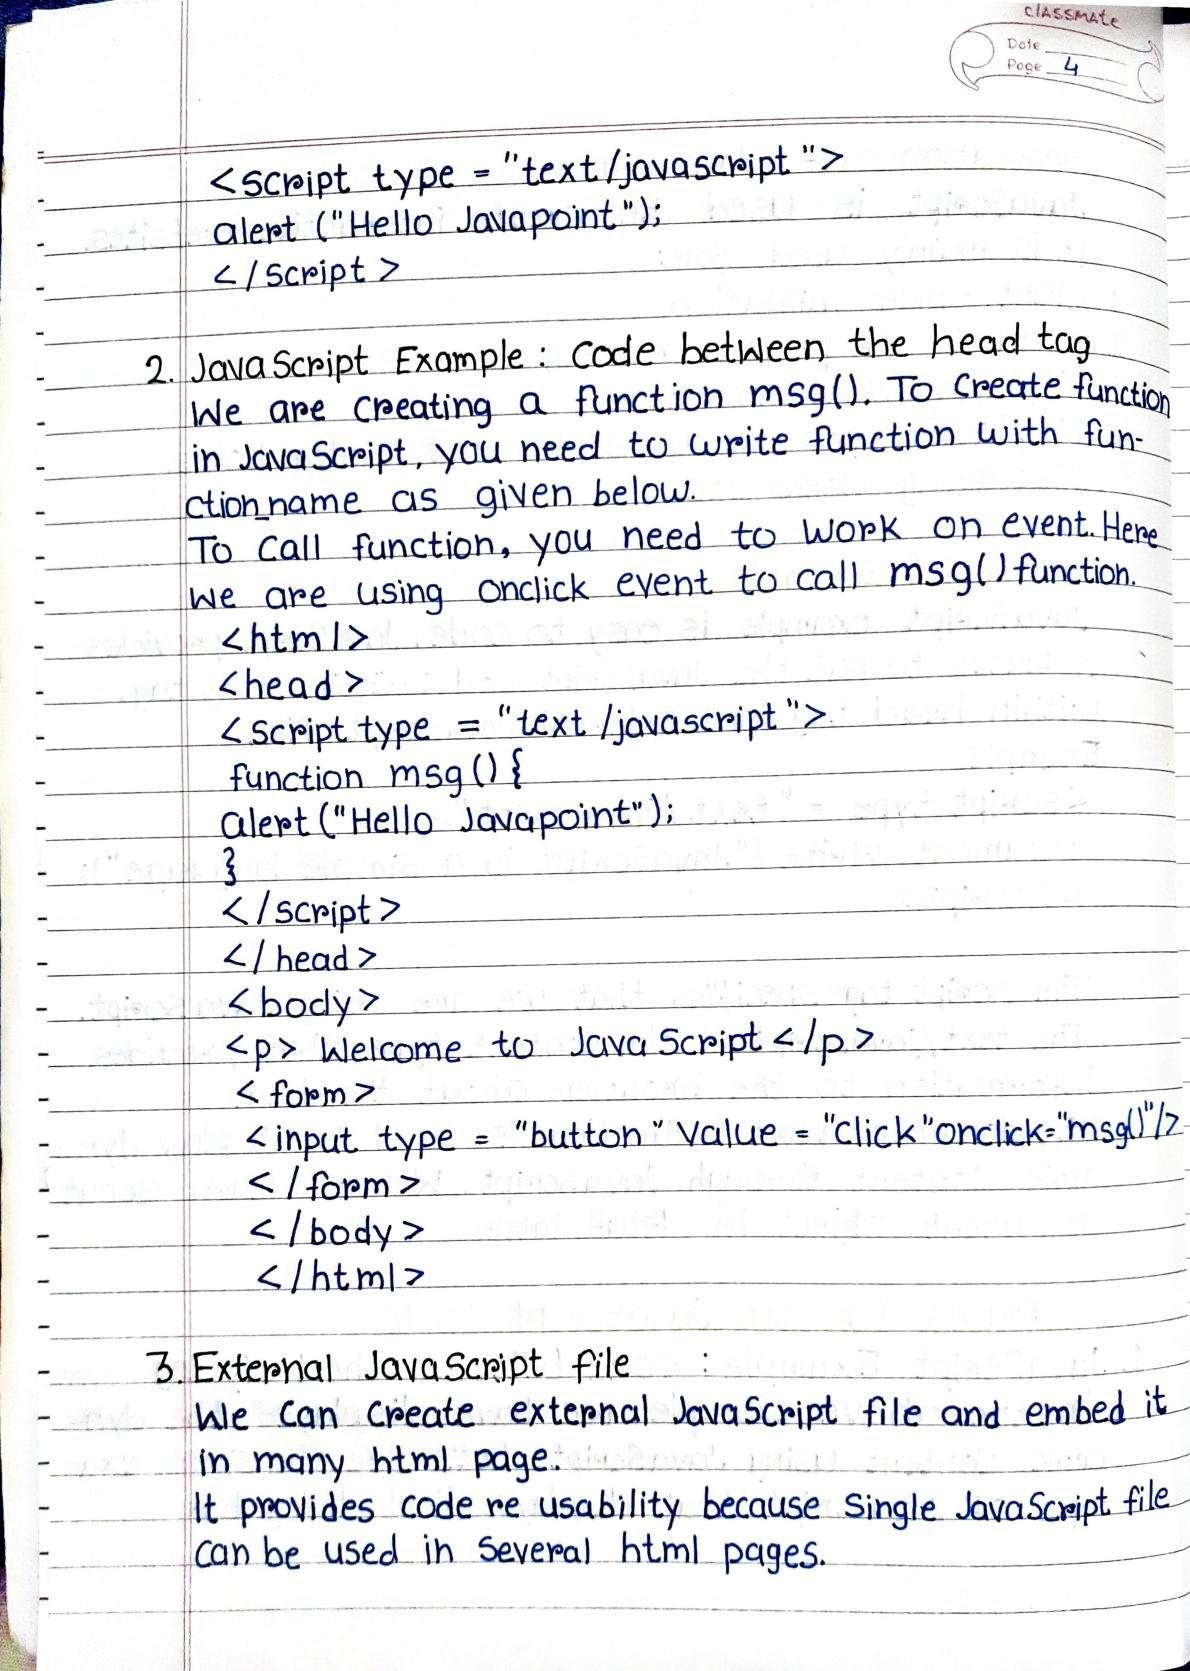 classmate
Date
Page 4
<script type = "text/javascript">
alert ("Hello Javapoint");
</script>
2. JavaScript Example : Code between the head tag
We are creating a function msg(). To Create function
in JavaScript, you need to write function with fun-
ction_name as given below.
To Call function, you need to work on event. Here
we are using onclick event to call msg() function.
<html>
<head>
<script type = "text/javascript">
function msg () {
alert ("Hello Javapoint");
}
</script>
</head>
<body>
<p> Welcome to JavaScript </p>
<form>
<input type = "button" value = "click" onclick="msg()"/>
</form>
</body>
</html>
3. External JavaScript file :
We can create external JavaScript file and embed it
in many html page.
It provides code re usability because single JavaScript file
can be used in several html pages.